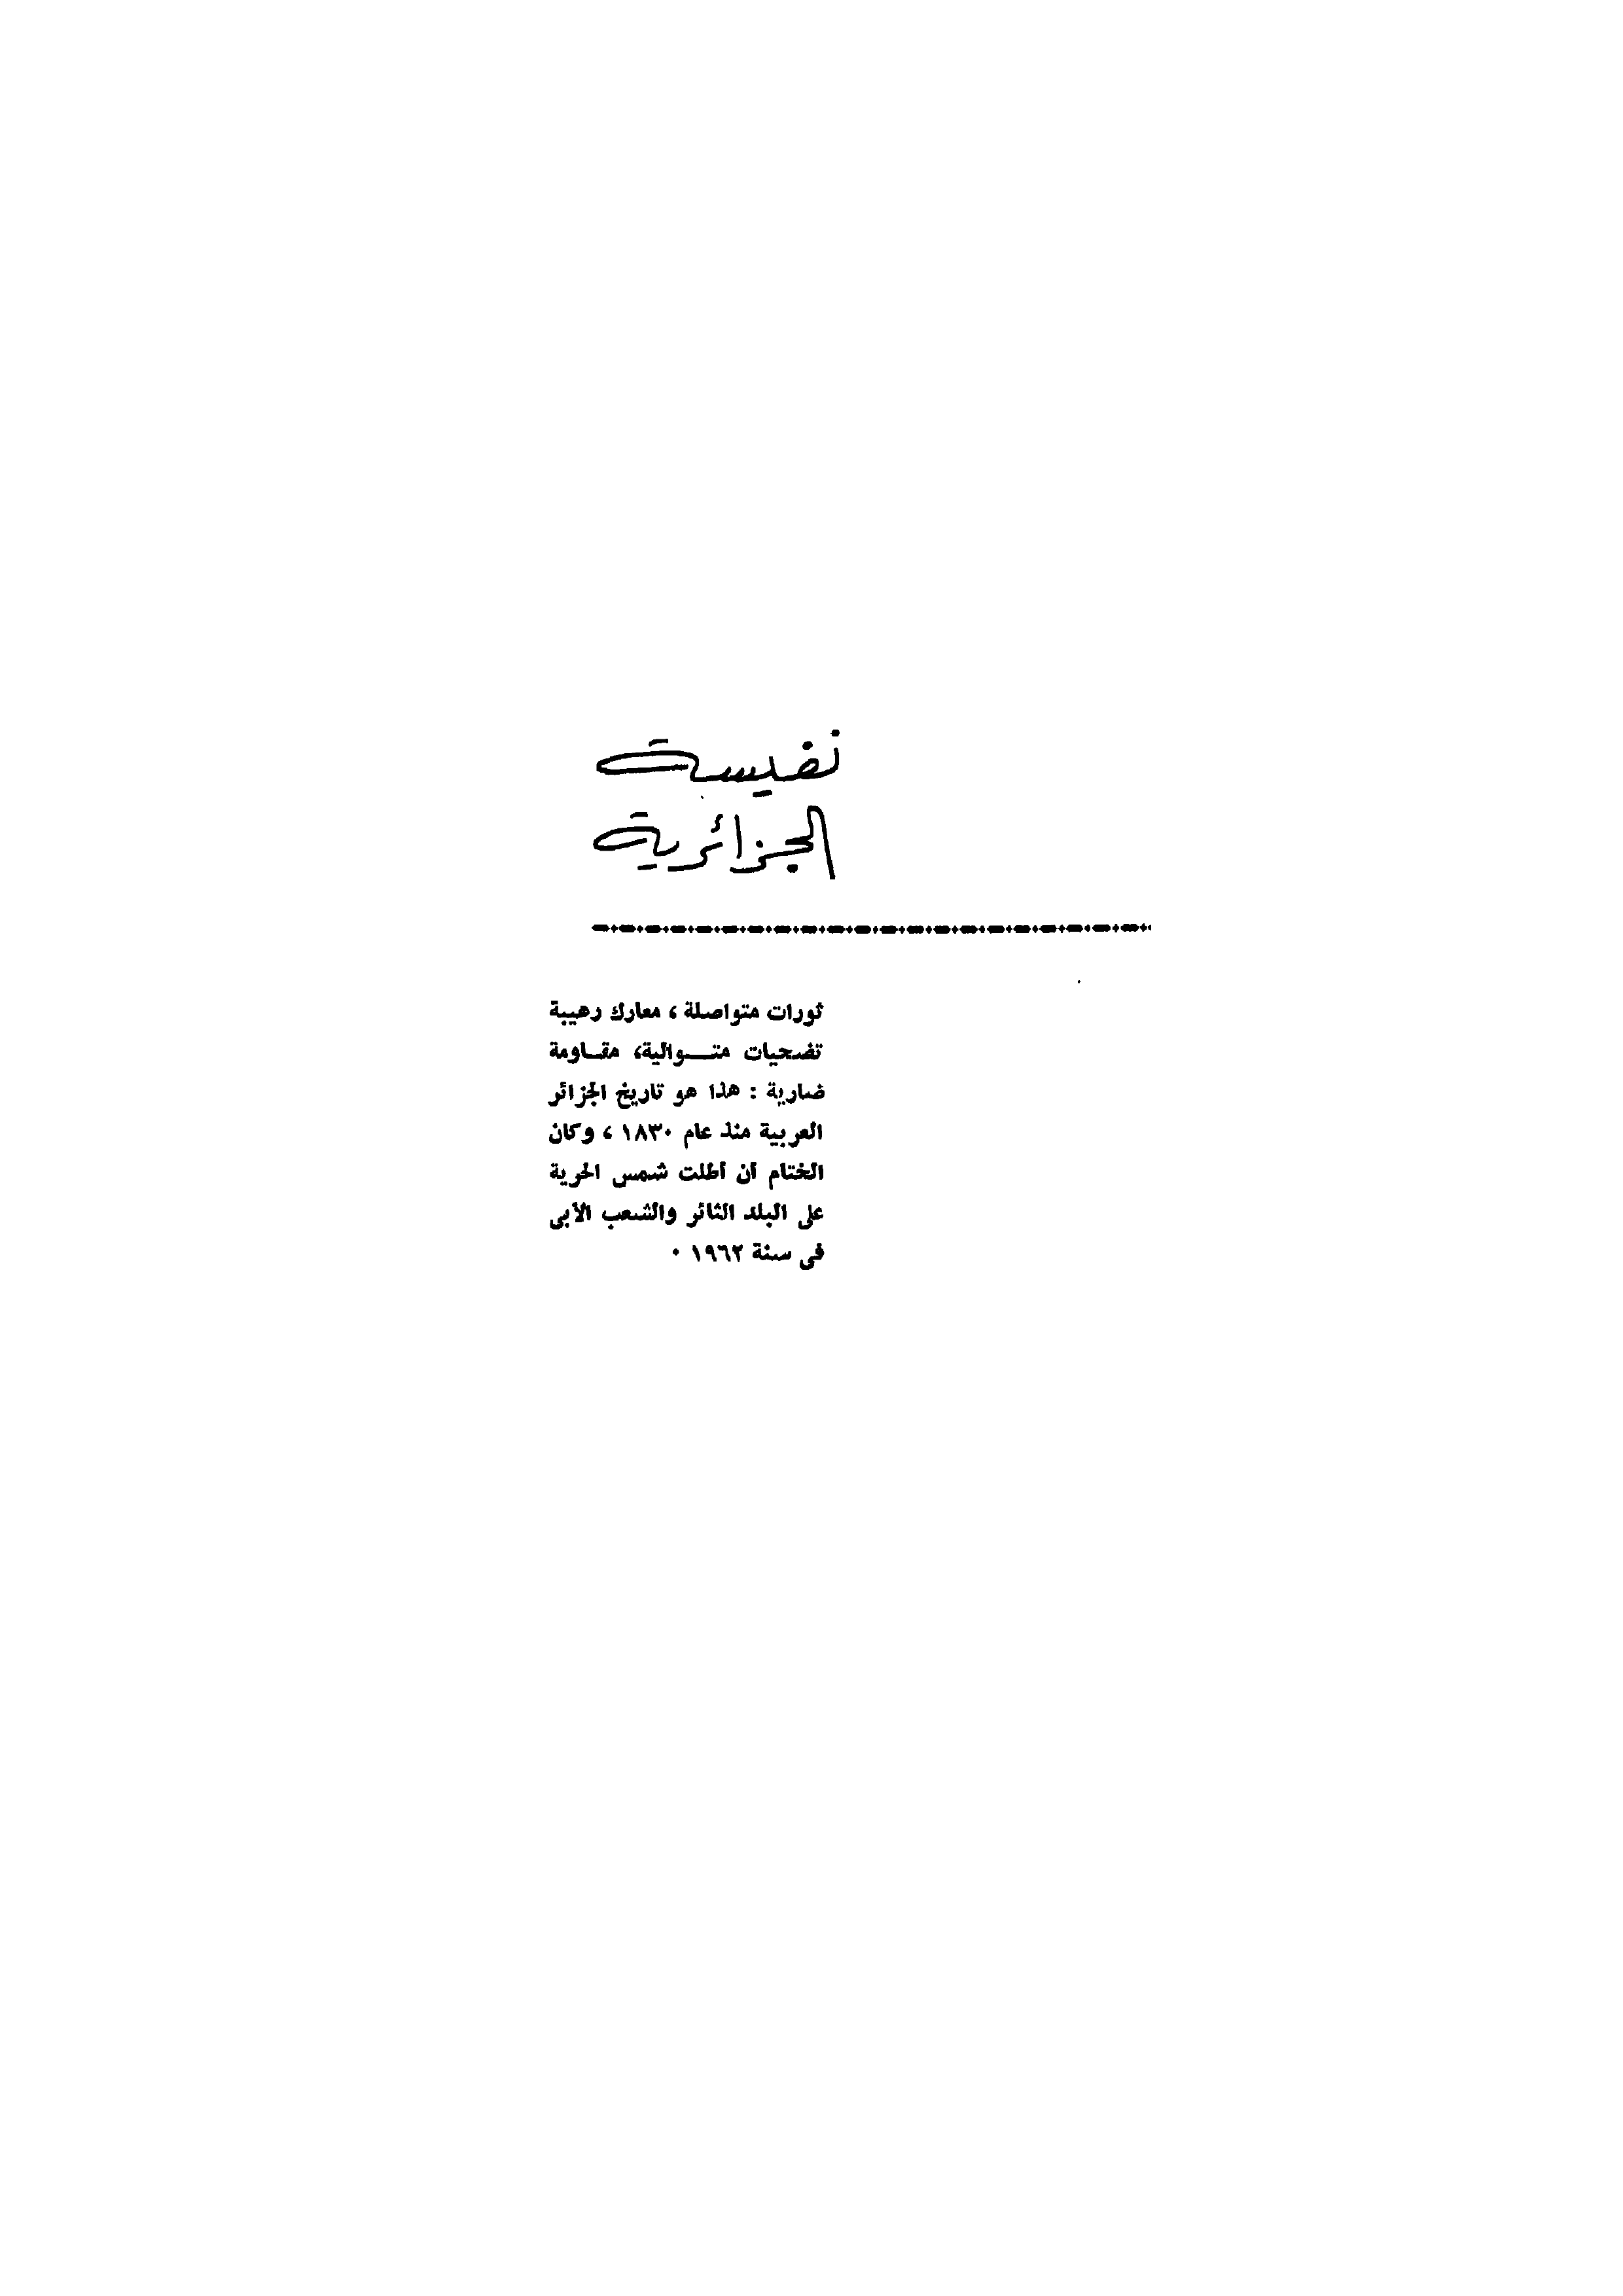 نفيسة
الجزائرية
ثورات متواصلة ، معارك رهيبة
تضحيات متـــوالية، مقـاومة
ضارية : هذا هو تاريخ الجزائر
العربية منذ عام ١٨٣٠ ، وكان
الختام أن أطلت شمس الحرية
على البلد الثائر والشعب الأبى
فى سنة ١٩٦٢ ٠